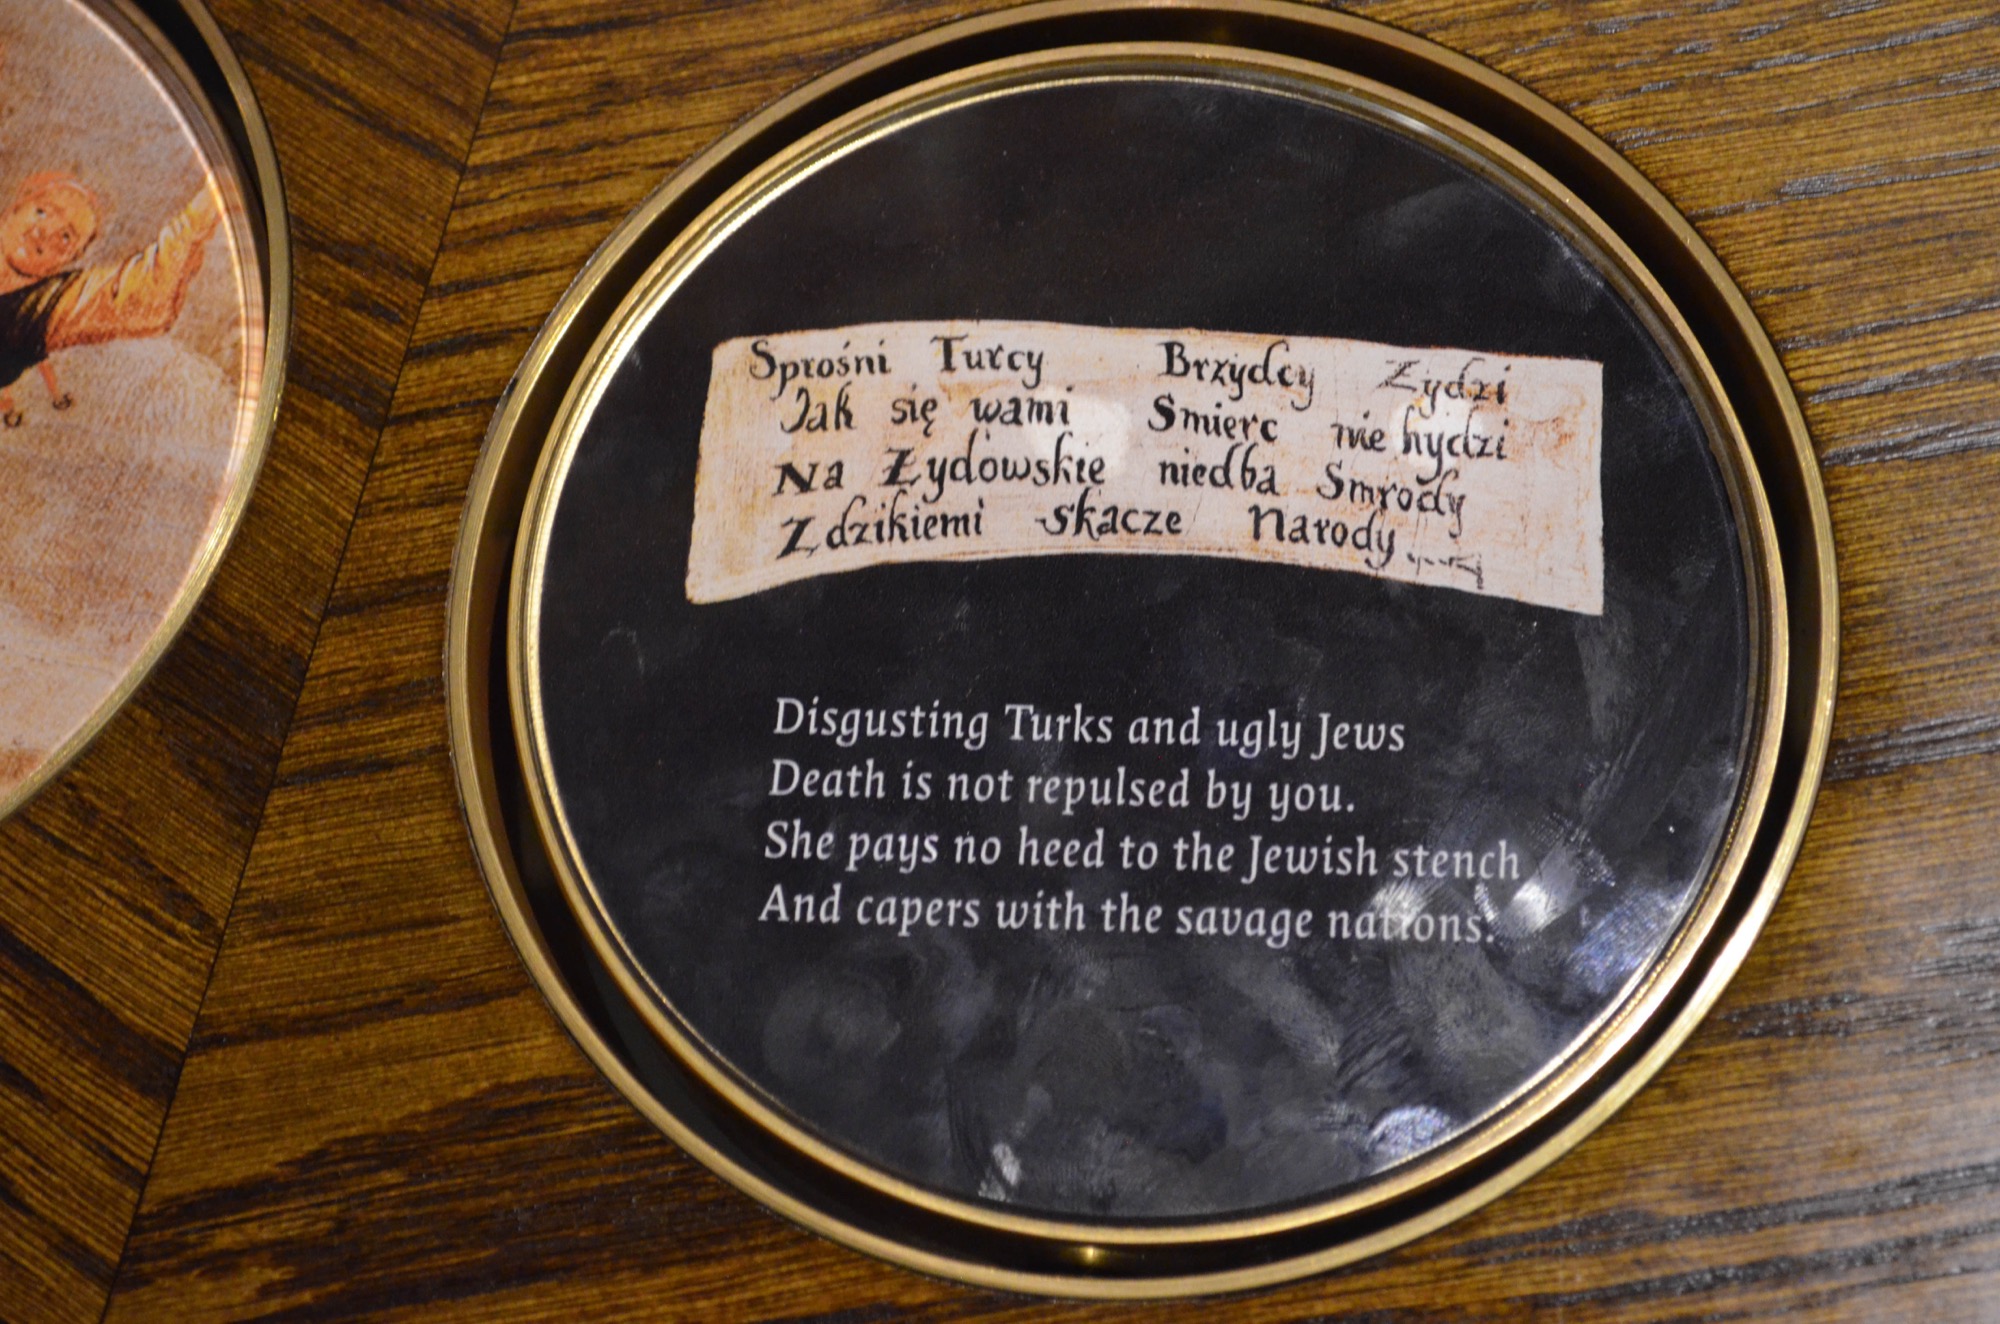 Sprośni Turcy Brzydcy Żydzi
Jak się wami Smierc nie hydzi
Na Żydowskie niedba Smrody
Z dzikiemi skacze Narody
Disgusting Turks and ugly Jews
Death is not repulsed by you.
She pays no heed to the Jewish stench
And capers with the savage nations.